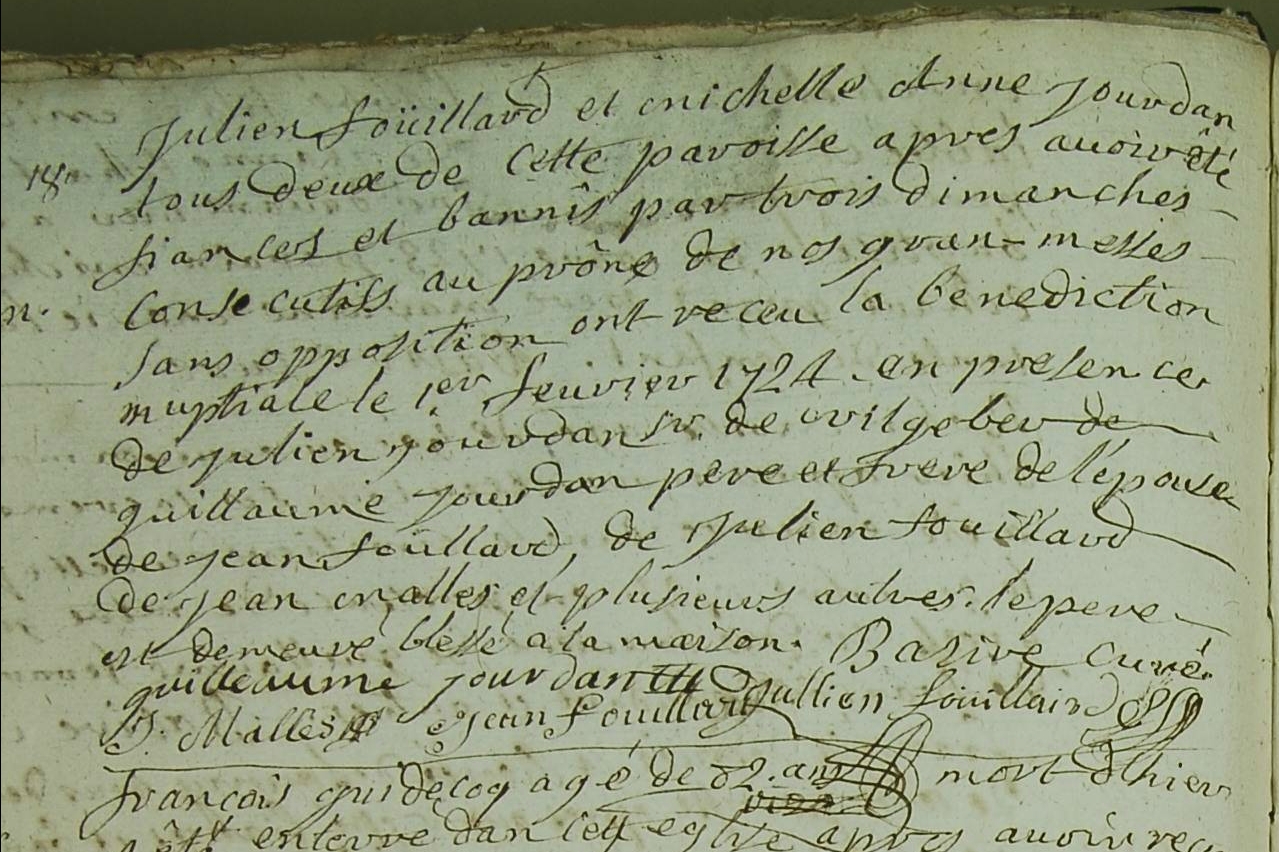 Julien foüillard et michelle Anne Jourdan
18 tous deux de cette paroisse apres auoir êté
fiances et bannîs par trois dimanches
consecutifs au prône de nos gran-messes
sans opposition ont receu la benediction
nuptiale le 1er feuvrier 1724 en presence
de julien jourdan sr. de vilgeber de
guillaume jourdan pere et frere de l'épouse
de jean foüllard, de Julien fouillard
de jean malles et plusieurs autres. le pere
est demeuré blessé a la maison. Bazire curé.
guilleaume jourdan
J. Malles Jean fouillard Jullien fouillaird
françois guidecoq agé de 82. ans mort d'hier
enterré dan cett eglise apres auoir receu